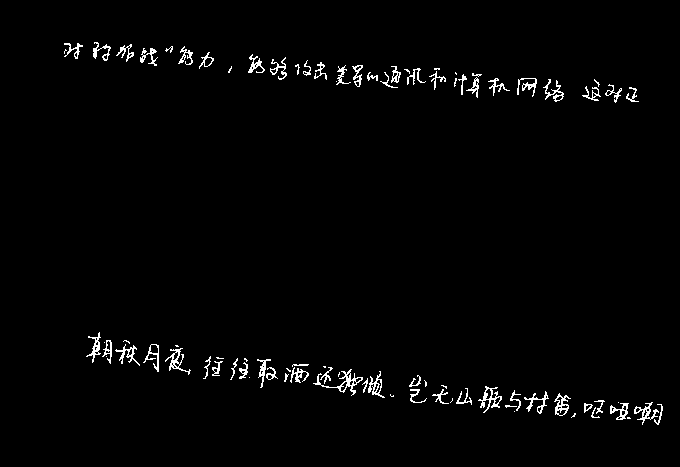 对称作战”能力，能够攻击美军的通讯和计算机网络 这对正
朝秋月夜，往往取酒还独倾。岂无山歌与村笛，呕哑嘲